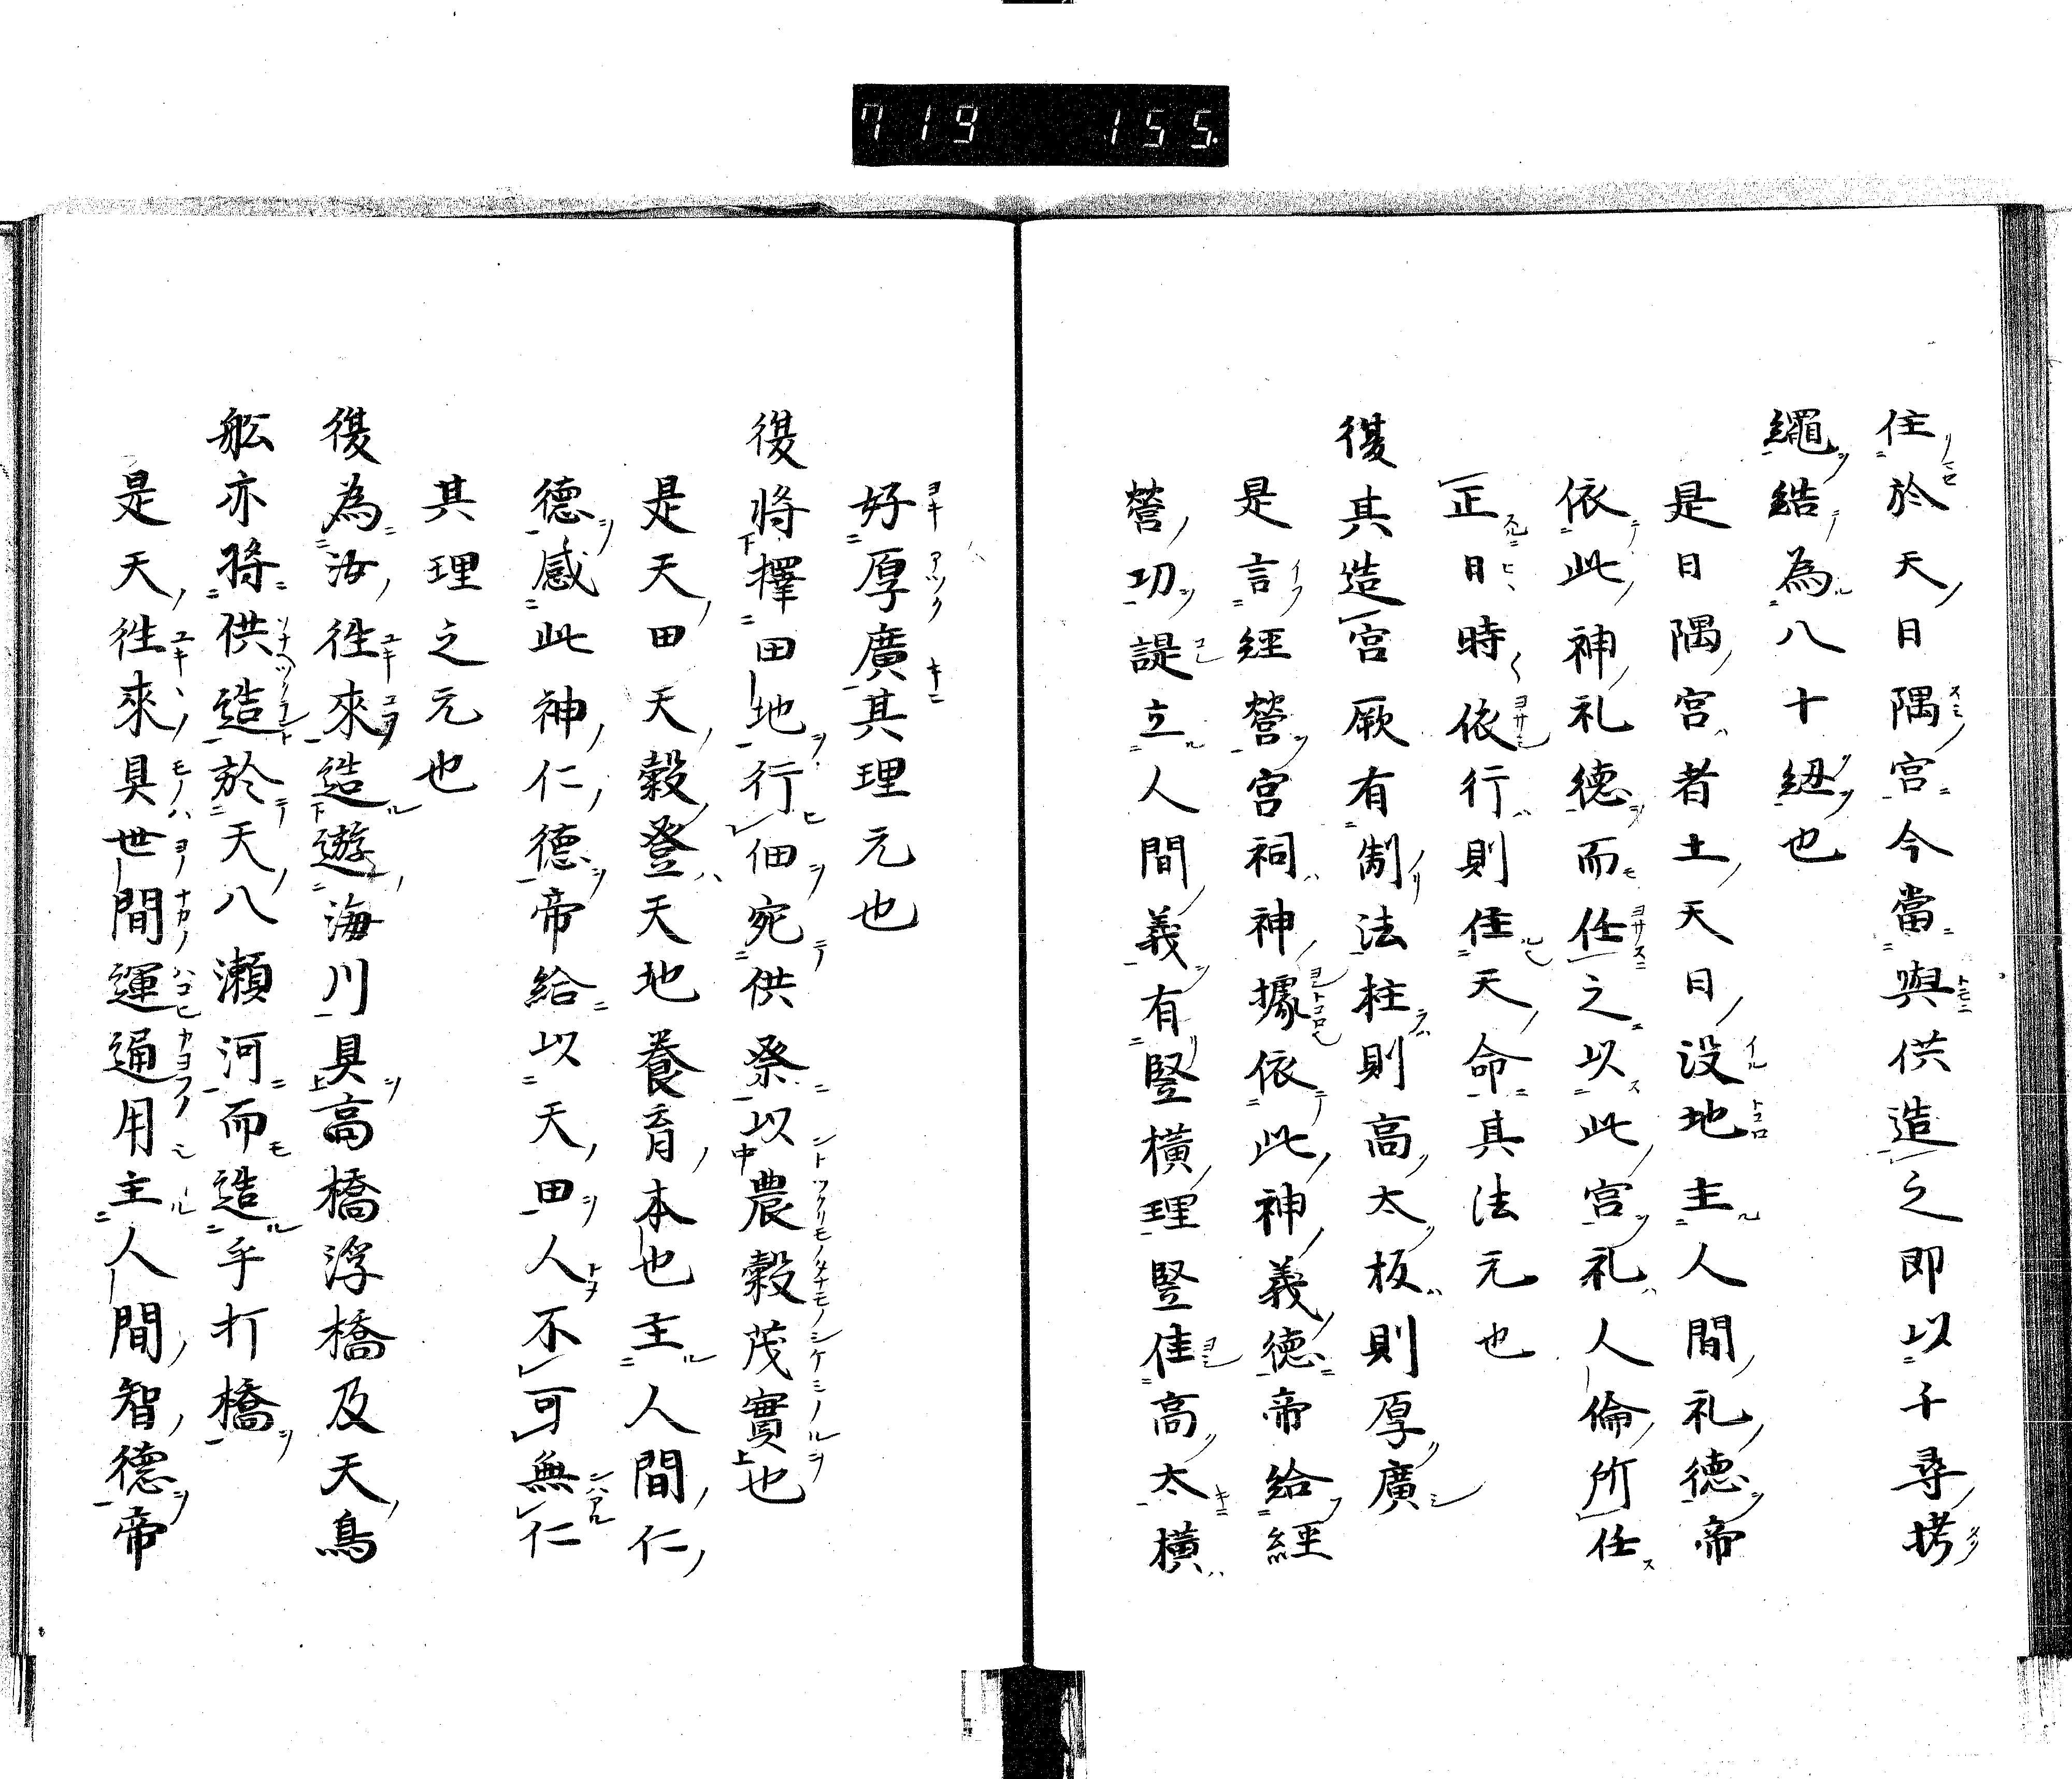 719 155
住於天日隅宮今當與供造之即以千尋栲
繩結為八十紐也
是日隅宮者土天日沒地主人間礼德帝
依此神礼德而任之以此宮礼人倫所任
正日時依行則佳天命其法元也
復其造宮厥有制法柱則高太板則厚廣
是言經營宮祠神據依此神義德帝給經
營功諟立人間義有竪橫理竪佳高太橫
好厚廣其理元也
復將擇田地行佃宛供祭以農穀茂實也
是天田天穀登天地養育本也主人間仁
德感此神仁德帝給以天田人不可無仁
其理之元也
復為汝往來造遊海川具高橋浮橋及天鳥
舩亦將供造於天八瀬河而造乎打橋
是天往來具世間運通用主人間智德帝